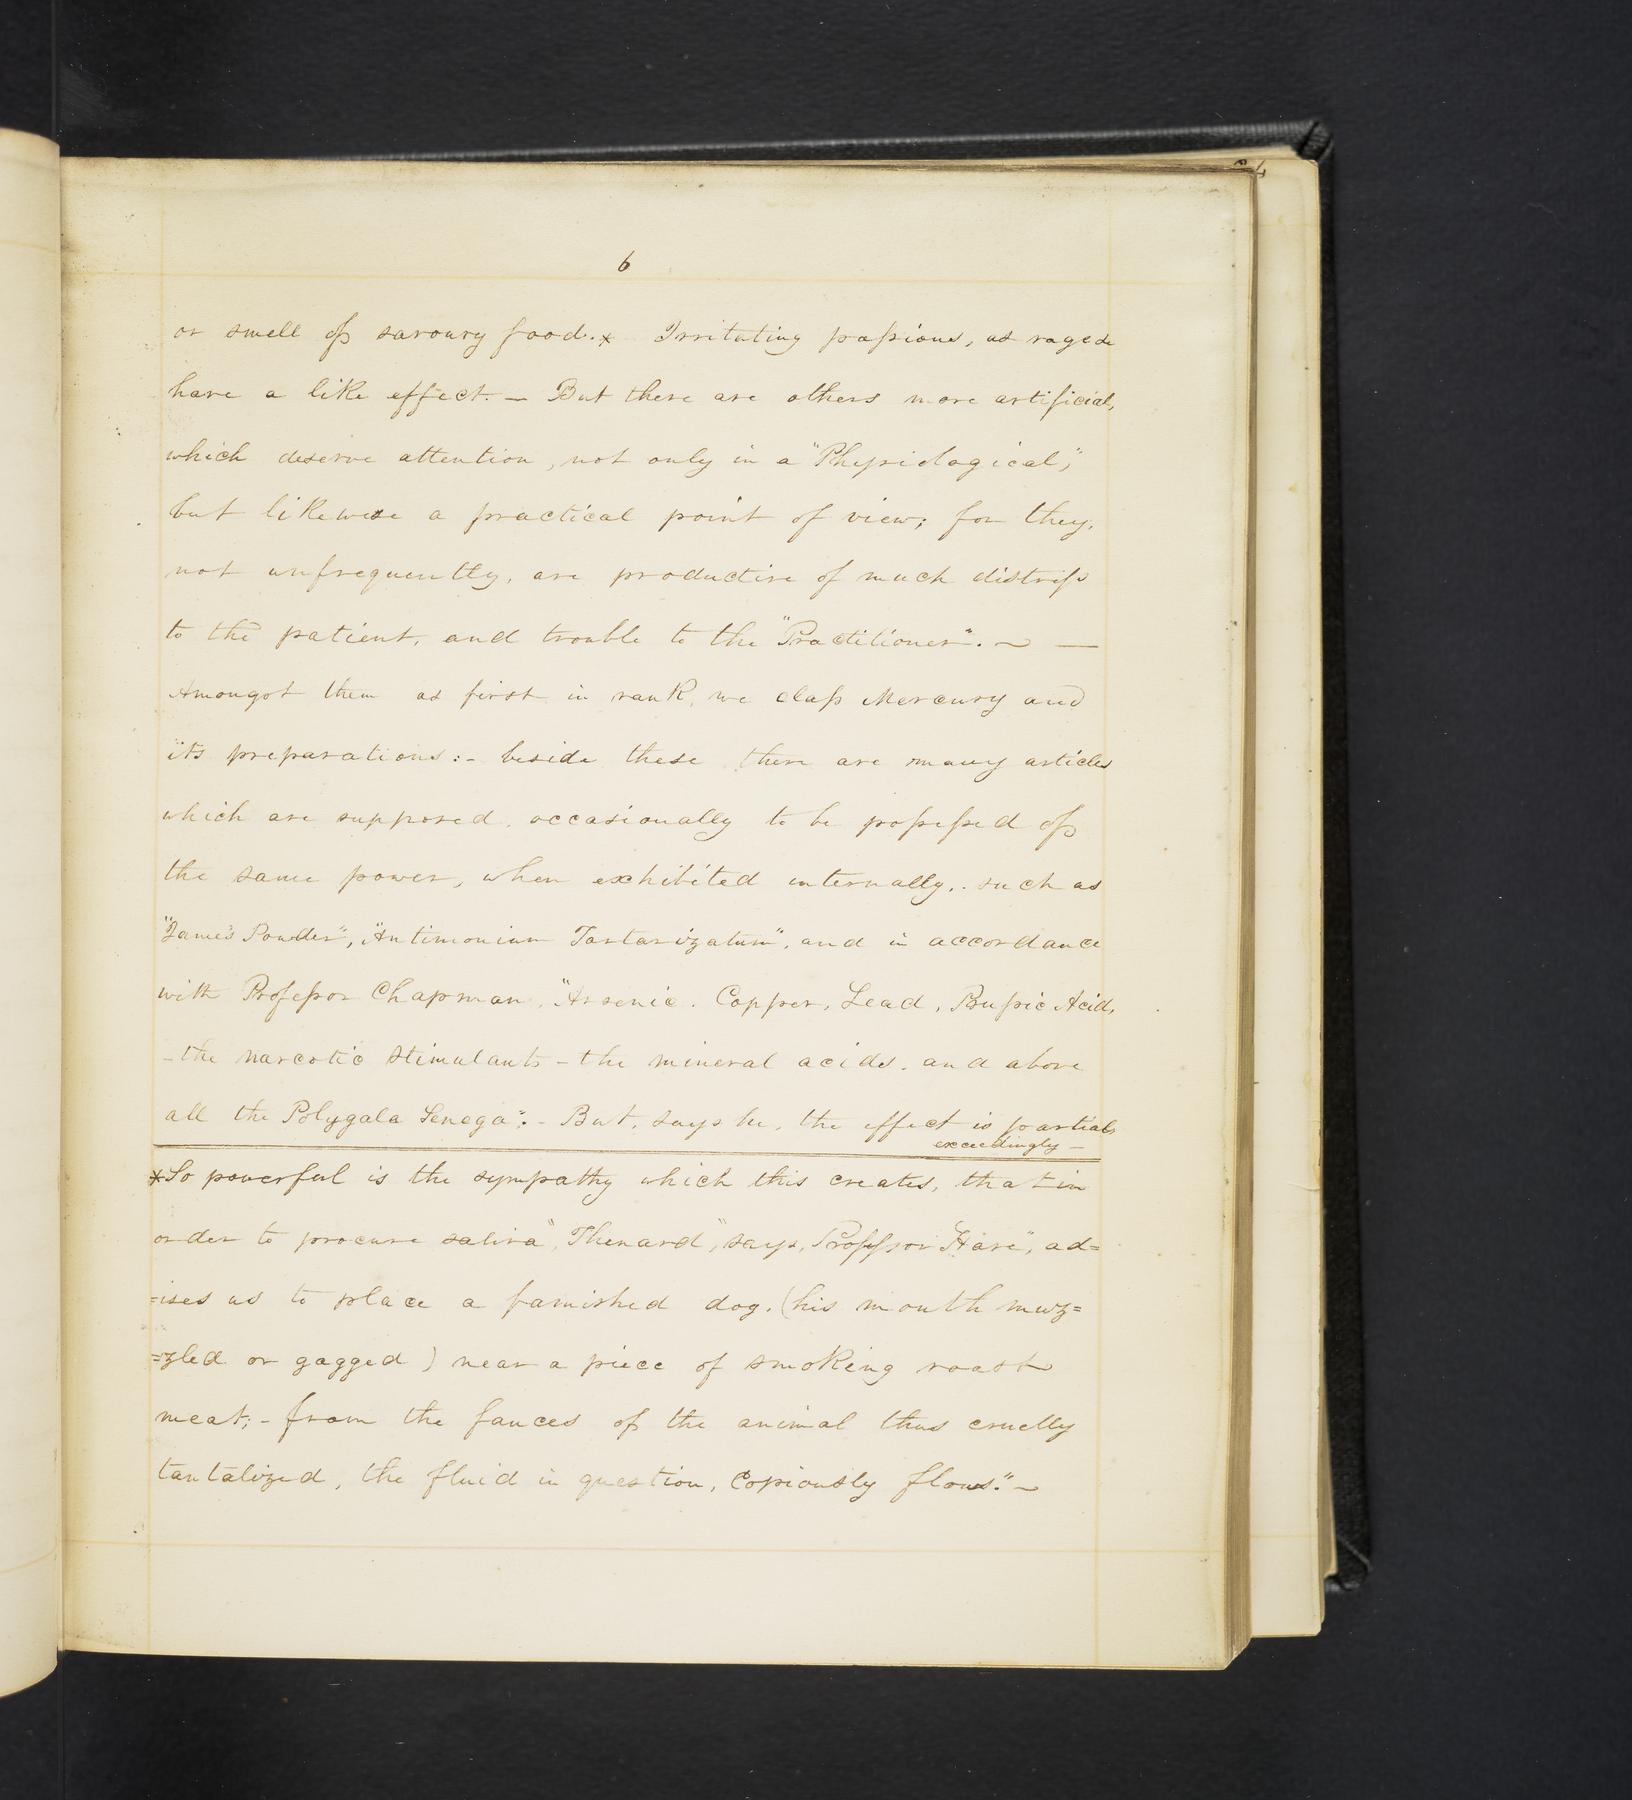 6
or smell of savoury food.* Irritating passions, as rage &c
have a like effect. — But there are others more artificial,
which deserve attention, not only in a "Physiological,"
but likewise a practical point of view; for they,
not unfrequently, are productive of much distress
to the patient, and trouble to the "Practitioner". ~ —
Amongst them as first in rank, we class Mercury and
its preparations:- beside these there are many articles
which are supposed, occasionally to be possessed of
the same power, when exhibited internally,. such as
"James Powder", "Antimonium Tartarizatum", and in accordance
with Professor Chapman, "Arsenic. Copper, Lead, Prussic Acid,
- the narcotic stimulants - the mineral acids. and above
all the Polygala Senega".- But, says he, the effect is partial,
exceedingly —
*So powerful is the sympathy which this creates, that in
order to procure saliva", "Thenard", says, Professor "Hare", ad=
=ises us to place a famished dog, (his mouth muz=
=zled or gagged) near a piece of smoking roast
meat;- from the fauces of the animal thus cruelly
tantalized, the fluid in question, copiously flows." ~